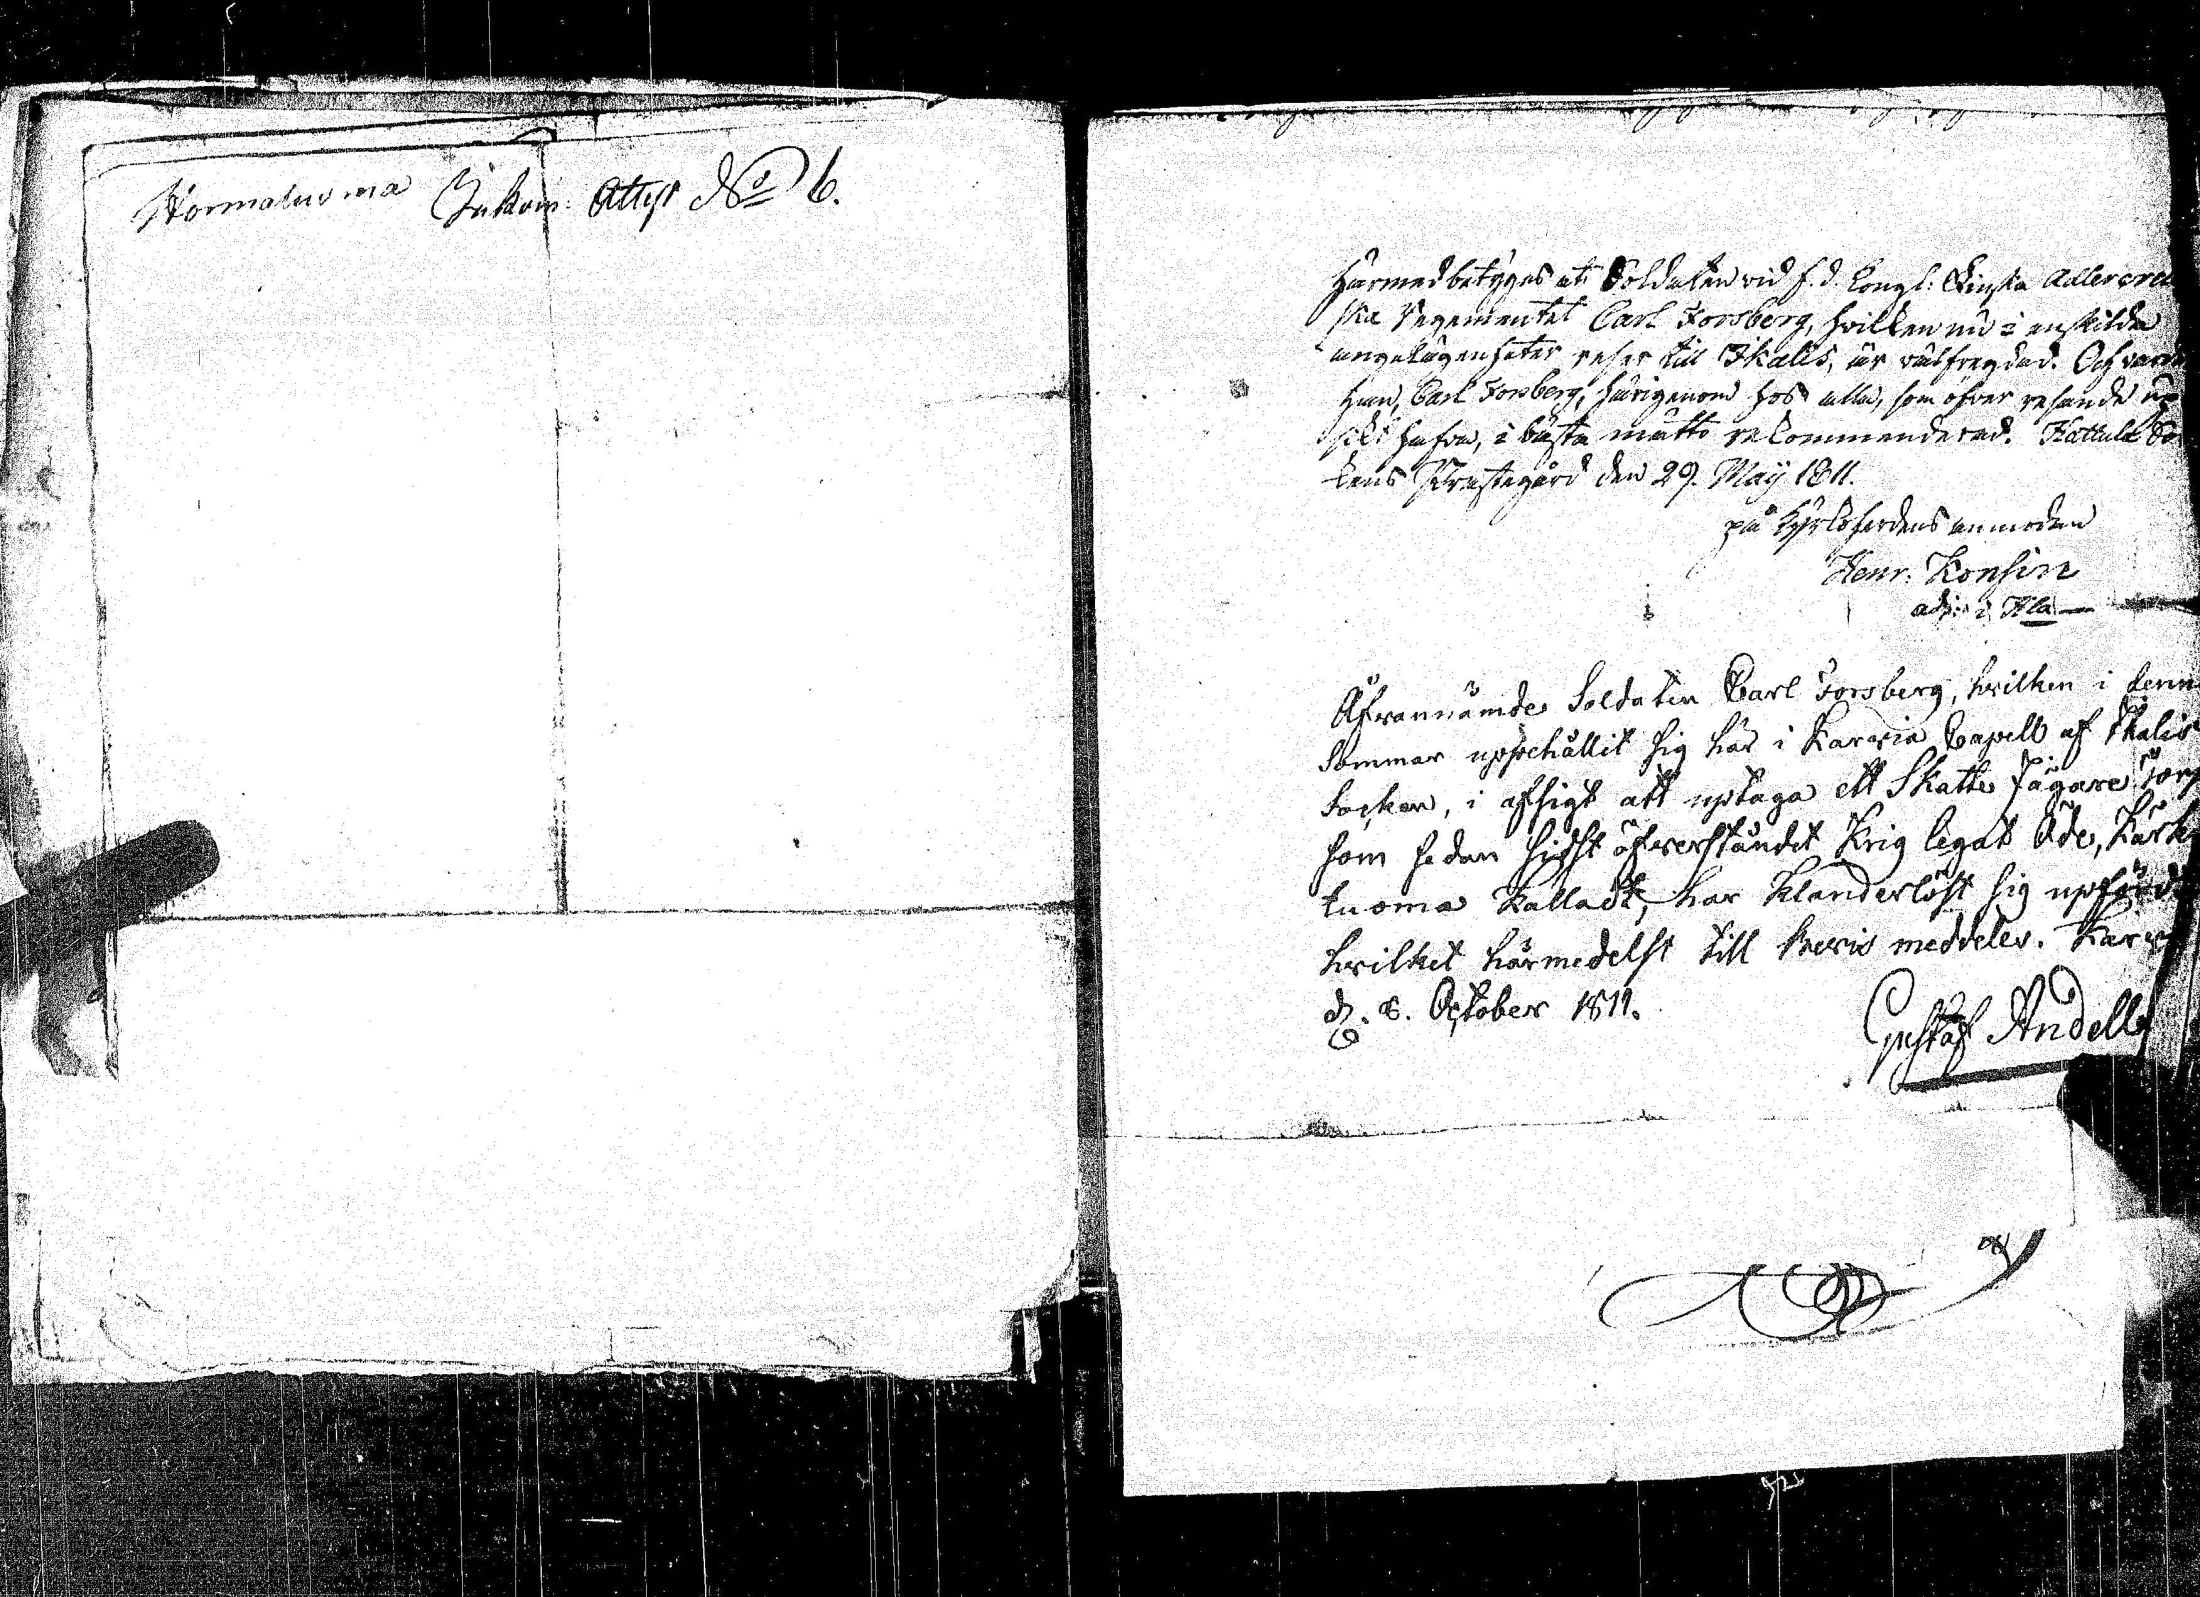 Inkom: Attest No 6.
Härmed betyges att Soldaten vid f. d. Kongl: Finska Adlercreu
ska Regementet Carl Forsberg, hvilken nu i enskilda
angelägenheter reser till Ikalis, är välfrägdad. Och varder
han, Carl Forsberg, härigenom hos alla, som öfver resande up
sikt hafva, i bästa måtto recommenderad. Hattula So
kens Prestegård den 29. Maÿ 1811.
på Kyrkoherdens anmodan
Henr. Konsin
adj: i Hla
Åfvannämde Soldaten Carl Forsberg, hvilken i denna
Sommar uppehållit sig här i Karvia Capell af Ikalis
Socken, i afsigt att uptaga ett Skatte Jägare Torp
som sedan sidst öfverståndet Krig legat Öde,
tuoma kalladt, har klanderlöst sig upfördt
hvilket härmedelst till bevis meddeles. Karvia
d. 8. October 1811.
Gustaf Andell